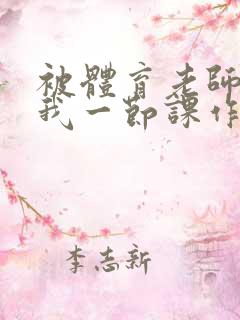 被體育老師
我一節課作
李志新